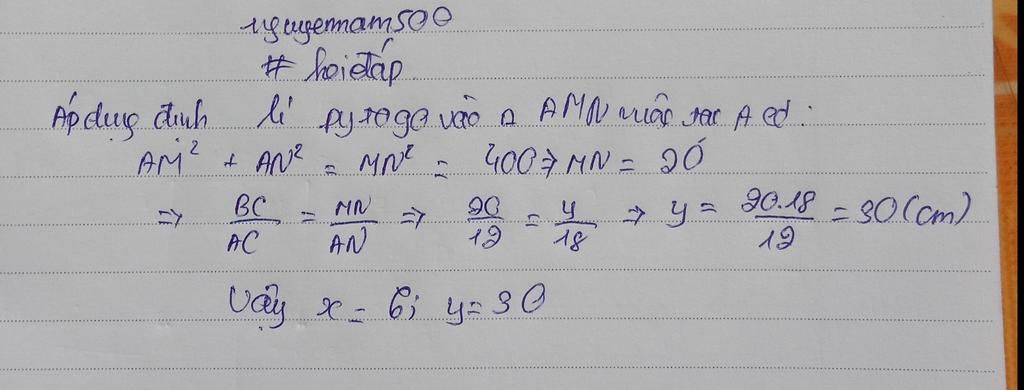 nguyenam500
# hoiđáp
Áp dụng định lí pytago vào Δ AMN vuông tại A có:
AM² + AN² = MN² = 400 => MN = 20
=> BC/AC = MN/AN => 20/12 = y/18 => y = 20.18/12 = 30 (cm)
Vậy x = 6; y = 30